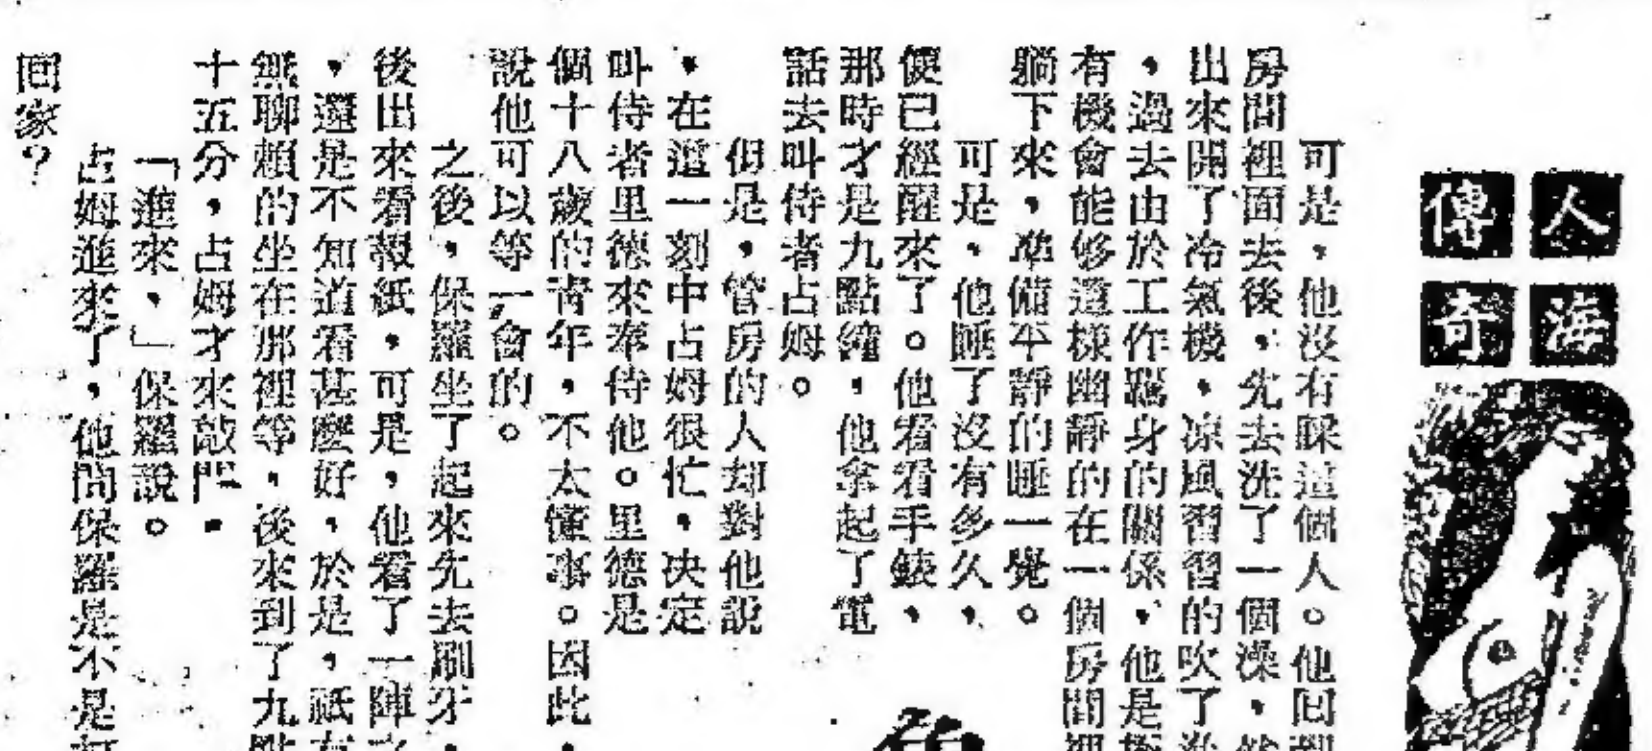 人海傳奇
可是，他沒有睬這個人。他回到
房間裡面去後，先去洗了一個澡，然
出來開了冷氣機，凉風習習的吹了
，過去由於工作羈身的關係，他是極
有機會能够這樣幽靜的在一個房間裡
躺下來，準備平靜的睡一覺。
可是，他睡了沒有多久，
便已經醒來了。他看看手錶，
那時才是九點鐘，他拿起了電
話去叫侍者占姆。
但是，管房的人却對他說
，在這一刻中占姆很忙，决定
叫侍者里德來奉侍他。里德是
個十八歲的青年，不太懂事。因此，
說他可以等一會的。
之後，保羅坐了起來先去刷牙，
後出來看報紙，可是，他看了一陣之
，還是不知道看甚麼好，於是，祇有
無聊賴的坐在那裡等，後來到了九點
十五分，占姆才來敲門。
「進來，」保羅說。
占姆進來了，他問保羅是不是打
回家？